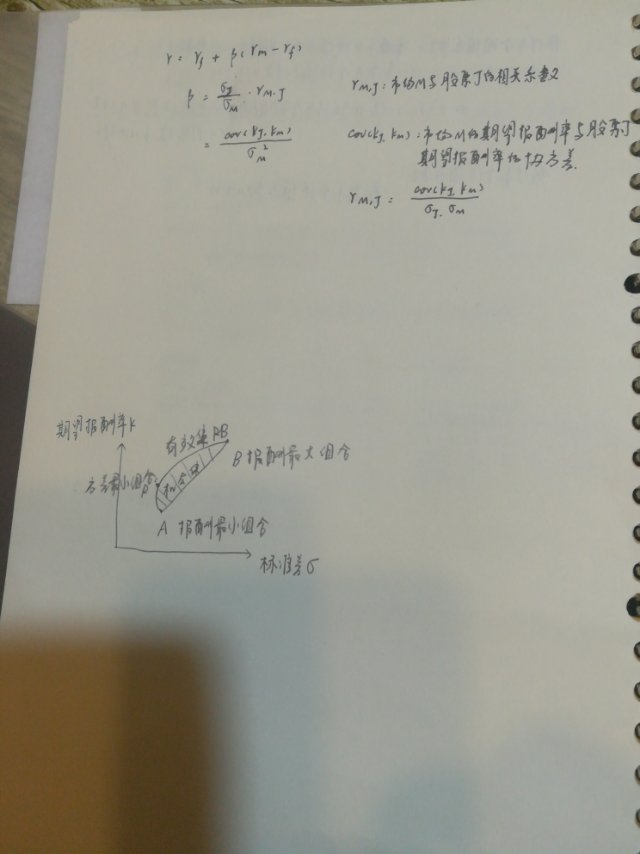 r = rf + β(rm - rf)
β = σJ/σM · rM.J
rM.J：市场M与股票J的相关系数
= cov(kJ, km)/σM²
cov(kJ, km)：市场M的期望报酬率与股票J
期望报酬率的协方差.
rM,J = cov(kJ, km)/σJ. σM
期望报酬率K
有效集PB
B 报酬最大组合
方差最小组合P
机会集
A 报酬最小组合
标准差σ